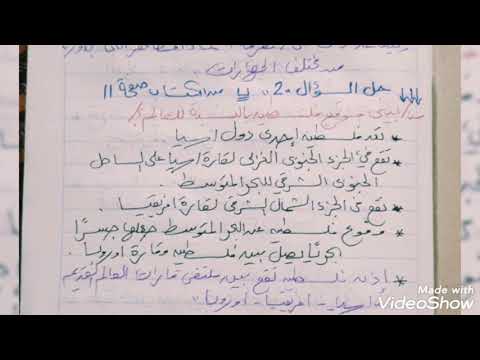 من مختلف الحضارات
حل السؤال "2" ب من الكتاب صفحة 11
س/ بيني موقع فلسطين بالنسبة للعالم؟
* تعد فلسطين إحدى دول آسيا
* تقع في الجزء الجنوبي الغربي لقارة آسيا على الساحل
الجنوبي الشرقي للبحر المتوسط.
* تقع في الجزء الشمالي الشرقي لقارة افريقيا.
* وقوع فلسطين عند البحر المتوسط جعلها جسرًا
بحريًا يصل بين فلسطين وقارة اوروبا.
* إذن فلسطين تقع بين ملتقى قارات العالم القديم
آسيا، افريقيا، اوروبا.
Made with
VideoShow